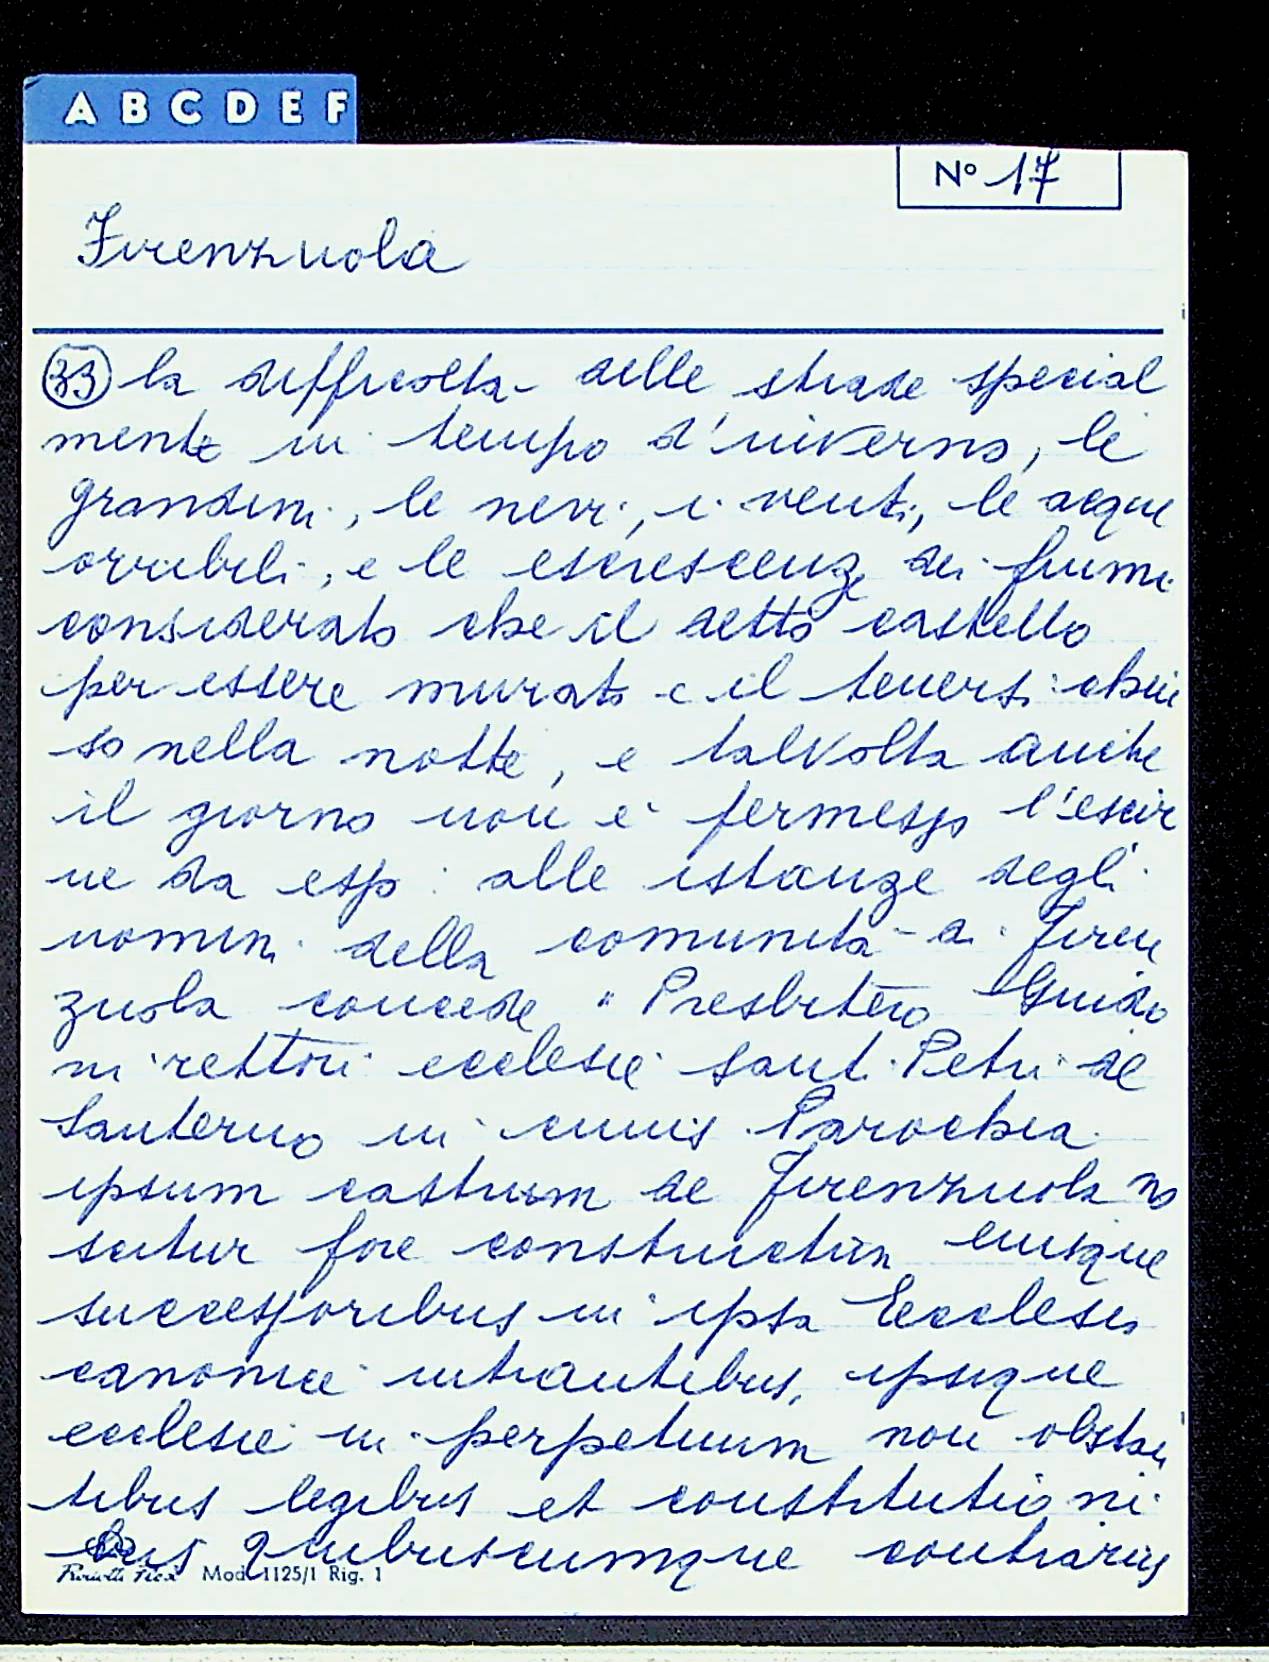 A B C D E F
N° 17
Firenzuola
33 la difficolta- delle strade special
mente in tempo d'inverno, le
grandini, le nevi, i venti, le acque
orribili, e le escrescenze dei fiumi
considerato che il detto castello
per essere murato e il tenersi chiu
so nella notte, e talvolta anche
il giorno non è permesso l'escir
ne da esso: alle istanze degli
uomini della comunità di Firen
zuola concede " Presbitero Guido
ni rettori ecclesie Santi Petri de
Santerno in cuius Parochia
ipsum castrum de Firenzuola no
scitur fore constructum eiusque
successoribus in ipsa Ecclesia
canonice intrantibus, ipsique
ecclesie in perpetuum non obstan
tibus legibus et constitutioni
bus quibuscumque contrariis
Mod. 1125/1 Rig. 1